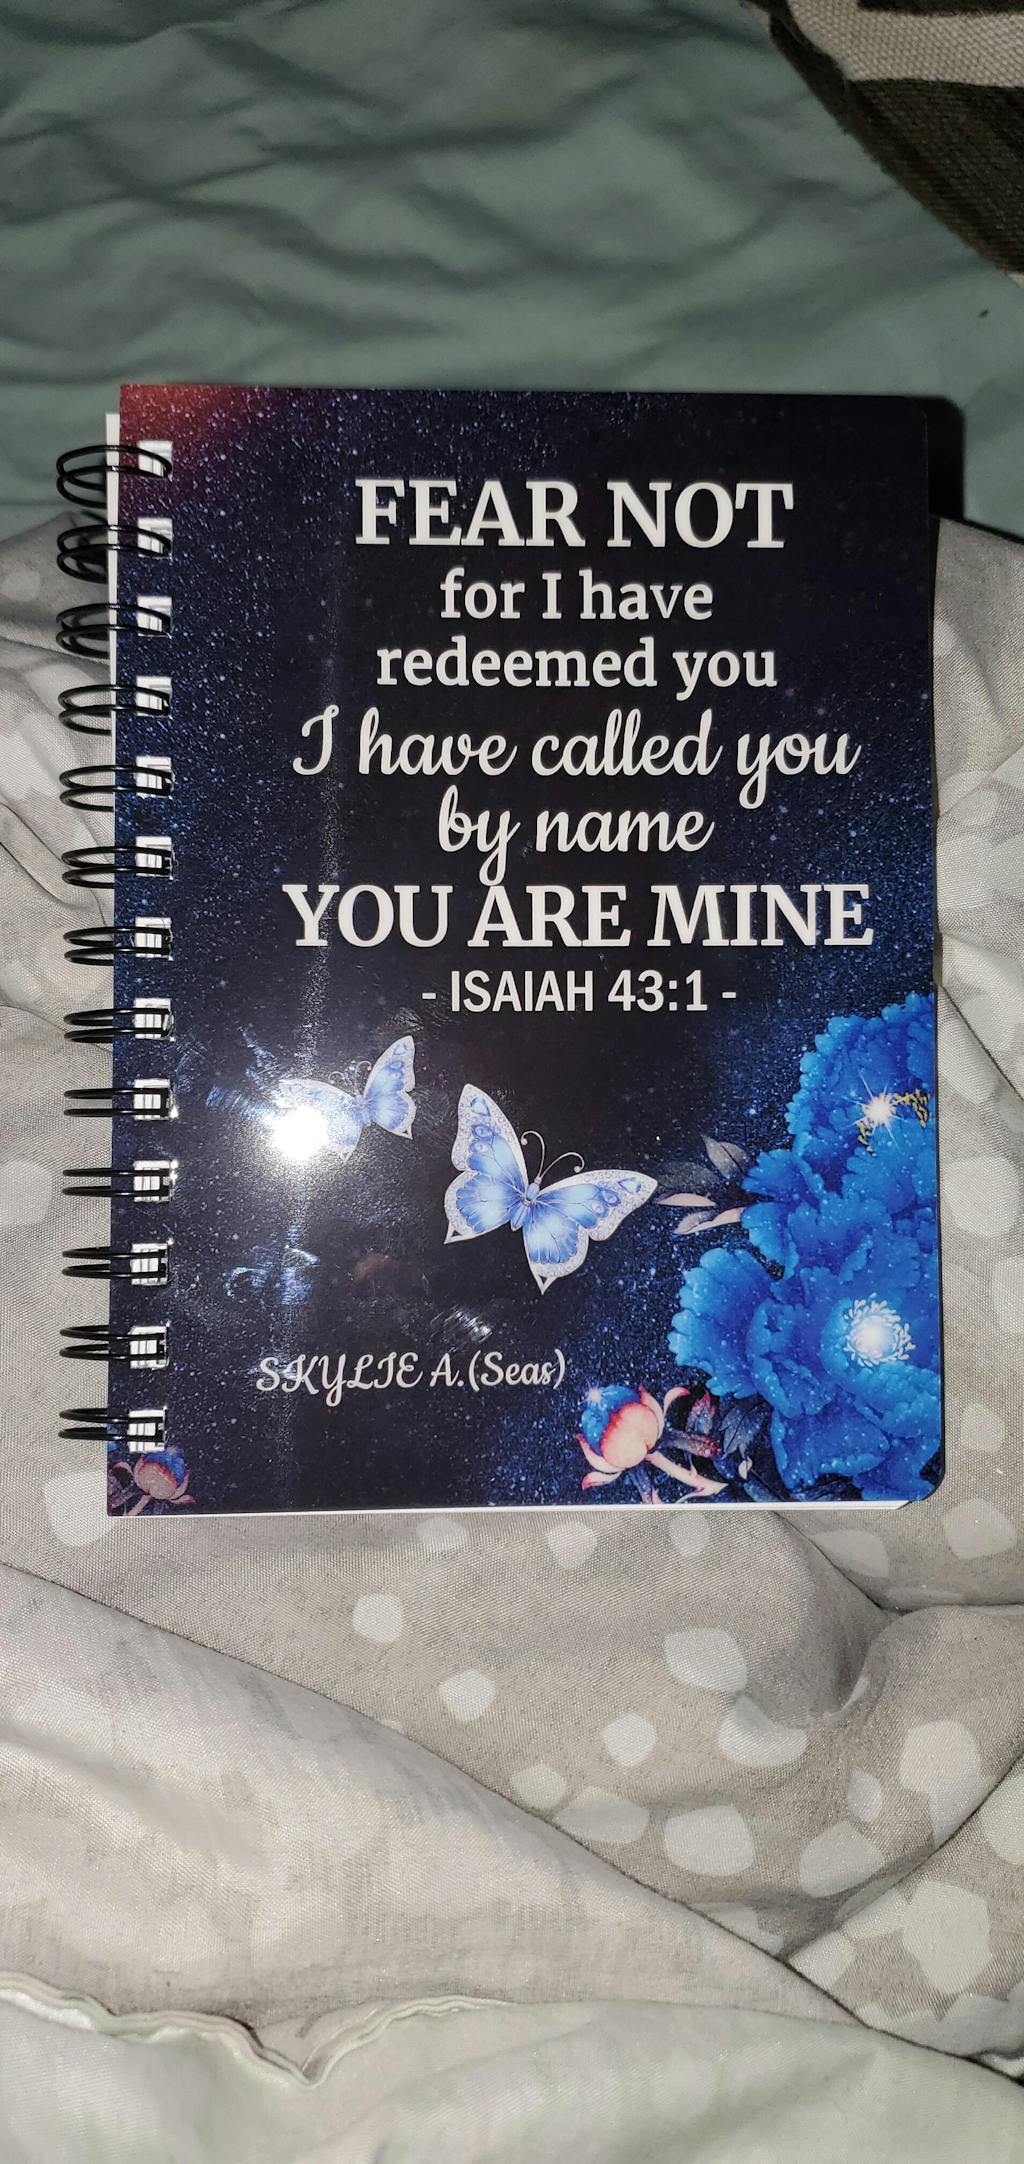 FEAR NOT
for I have
redeemed you
I have called you
by name
YOU ARE MINE
- ISAIAH 43:1 -
SKYLIE A.(Seas)